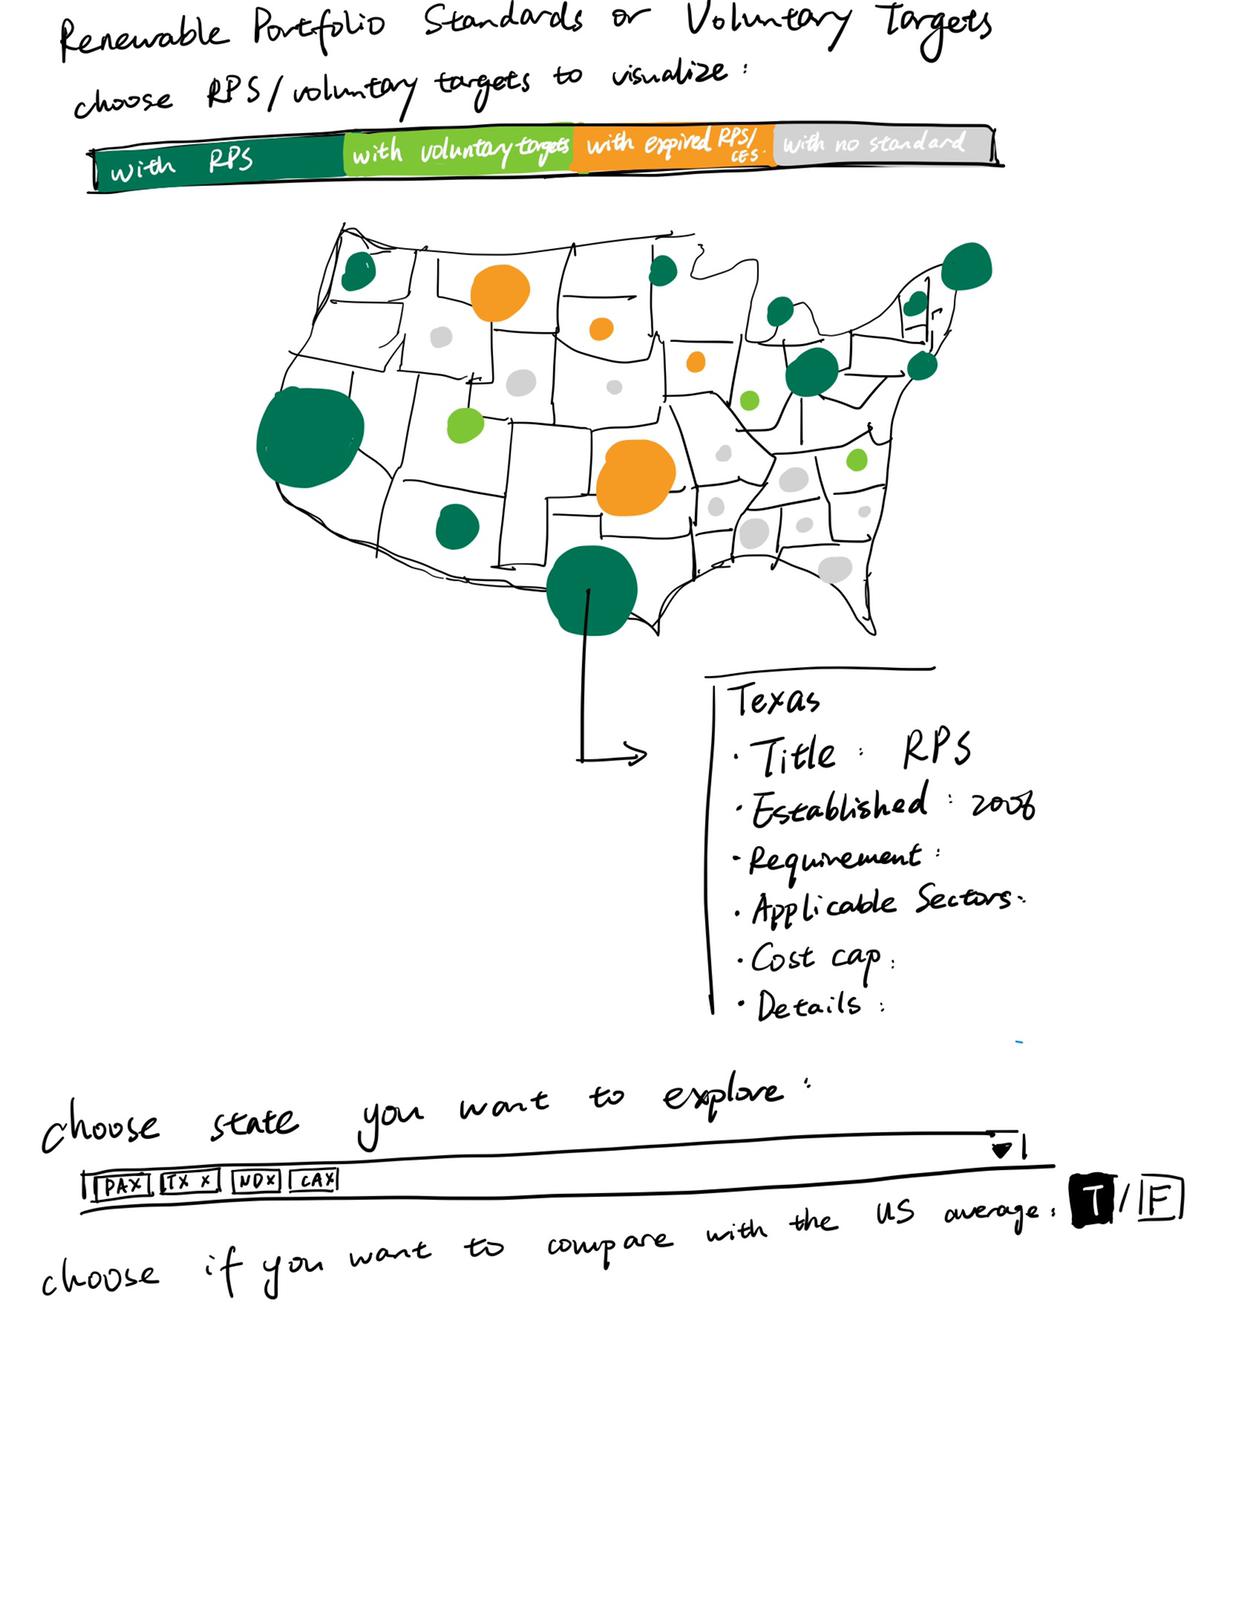 Renewable Portfolio Standards or Voluntary Targets
choose RPS/voluntary targets to visualize:
with RPS with voluntary targets with expired RPS/CES. with no standard
Texas
· Title : RPS
· Established : 2008
· Requirement :
· Applicable Sectors:
· Cost cap :
· Details :
choose state you want to explore :
PA x TX x ND x CA x
choose if you want to compare with the US average: T / F